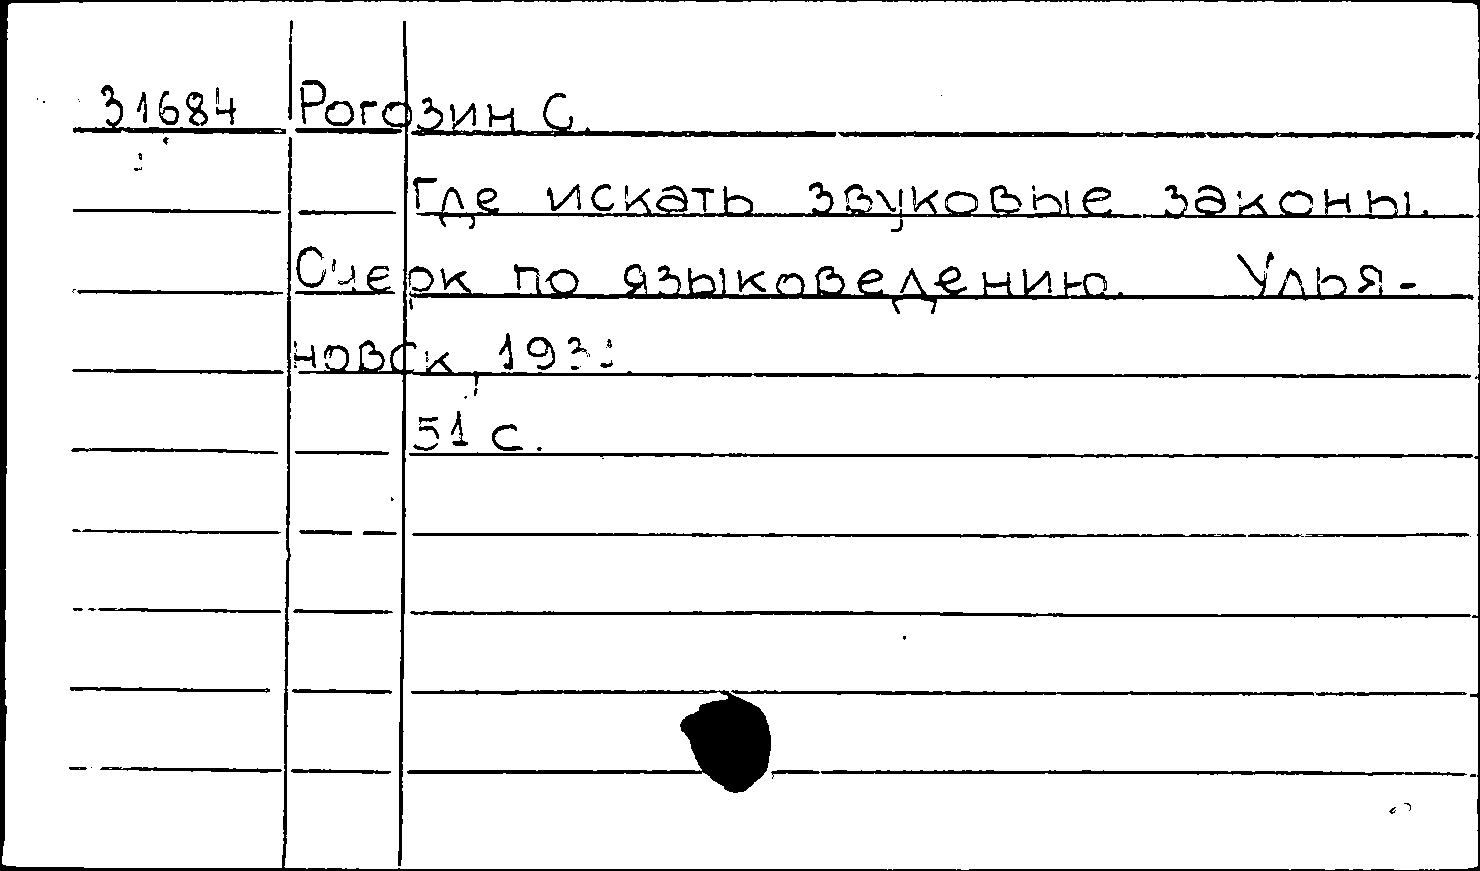 31684 Рогозин С.
Где искать звуковые законы.
Очерк по языковедению. Улья-
новск,
51 с.